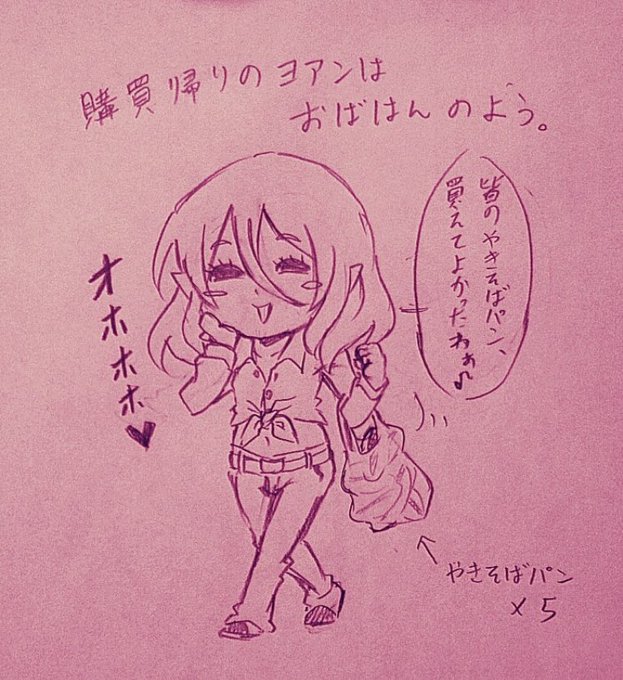 購買帰りのヨアンは
おばはんのよう。
皆のやきそばパン、
買えてよかったわぁ♪
オホホホホ♥
やきそばパン
×5